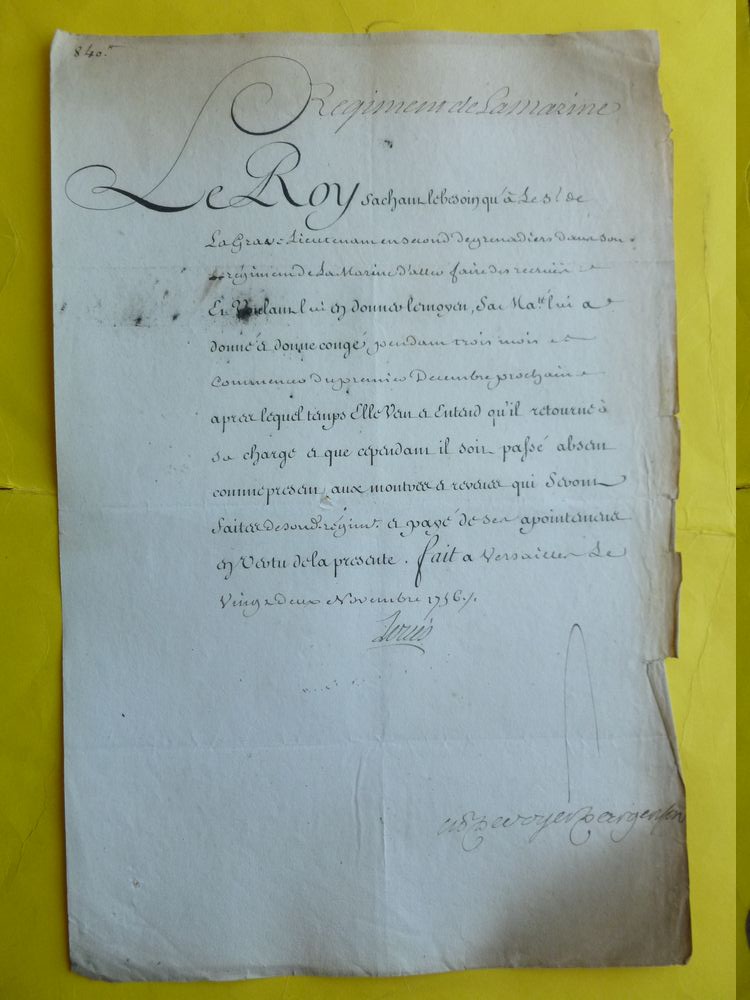 840.tt
Regiment de Lamarine
Le Roy Sachant le besoin qu'à Le Sr. de
La Grave Lieutenant en second de grenadiers dans son
regiment de La Marine d'aller faire des recruës
Et Voulant lui en donner le moyen, Sa Ma.té lui a
donné et donne congé, pendant trois mois a
Commencer du premier Decembre prochain
aprés lequel temps Elle Veut et Entend qu'il retourne à
sa charge et que cependant il soit passé absent
comme present, aux montres et reveües qui Seront
faites de son d. régim.t et payé de ses apointemens
en Vertu de la presente. fait a Versailles Le
Vingt deux Novembre 1756./.
Louis
M. P. De Voyer D'argenson